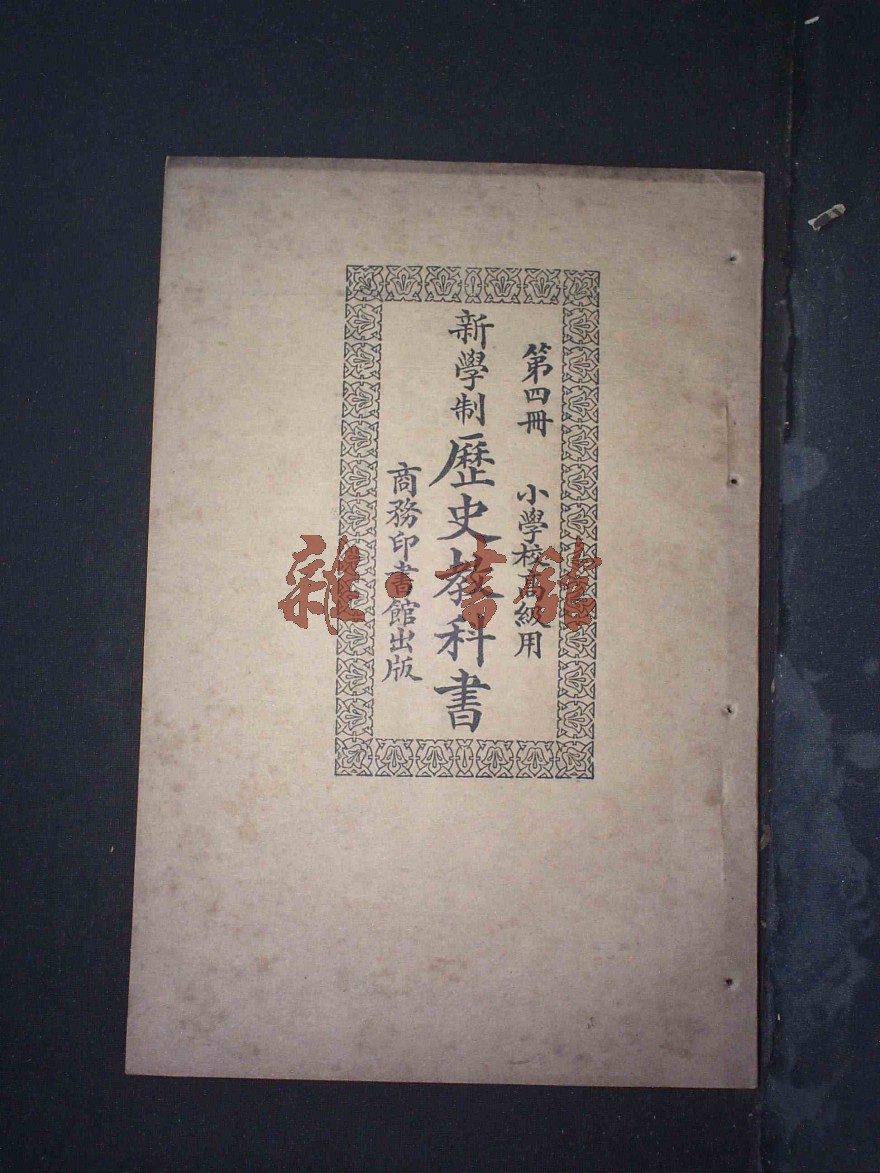 第四冊 小學校高級用
新學制歷史教科書
商務印書館出版
雜·書館